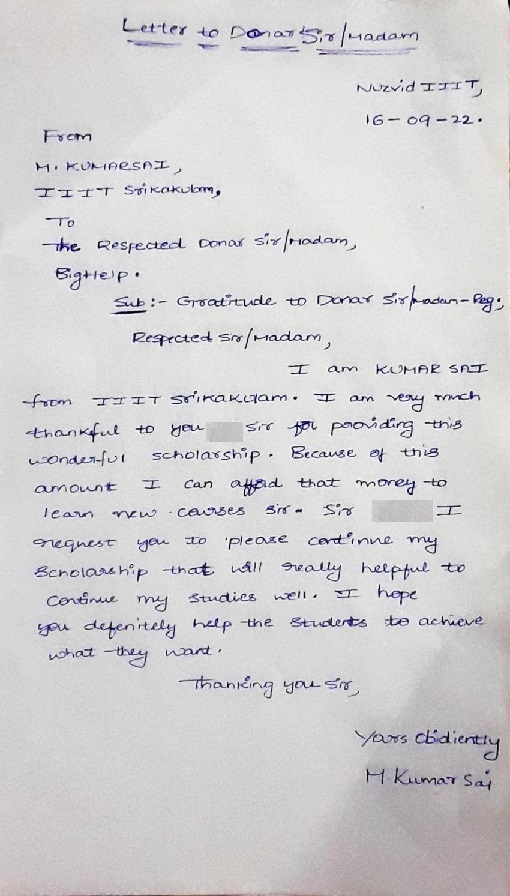 Letter to Donar Sir/Madam
Nuzvid IIIT,
16-09-22.
From
M. KUMARSAI,
IIIT Srikakulam,
To
The Respected Donar Sir/Madam,
BigHelp.
Sub:- Gratitude to Donar Sir/Madam-Reg;
Respected Sir/Madam,
I am KUMAR SAI
from IIIT Srikakulam. I am very much
thankful to you sir for providing this
wonderful scholarship. Because of this
amount I can afford that money to
learn new courses sir. Sir I
request you to please continue my
Scholarship that will really helpful to
Continue my studies well. I hope
you defenitely help the students to achieve
what they want.
Thanking you sir,
Yours Obidiently
M. Kumar Sai